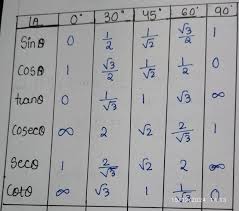 ∠A 0° 30° 45° 60° 90°
Sinθ 0 1/2 1/√2 √3/2 1
Cosθ 1 √3/2 1/√2 1/2 0
tranθ 0 1/√3 1 √3 ∞
Cosecθ ∞ 2 √2 2/√3 1
Secθ 1 2/√3 √2 2 ∞
Cotθ ∞ √3 1 1/√3 0